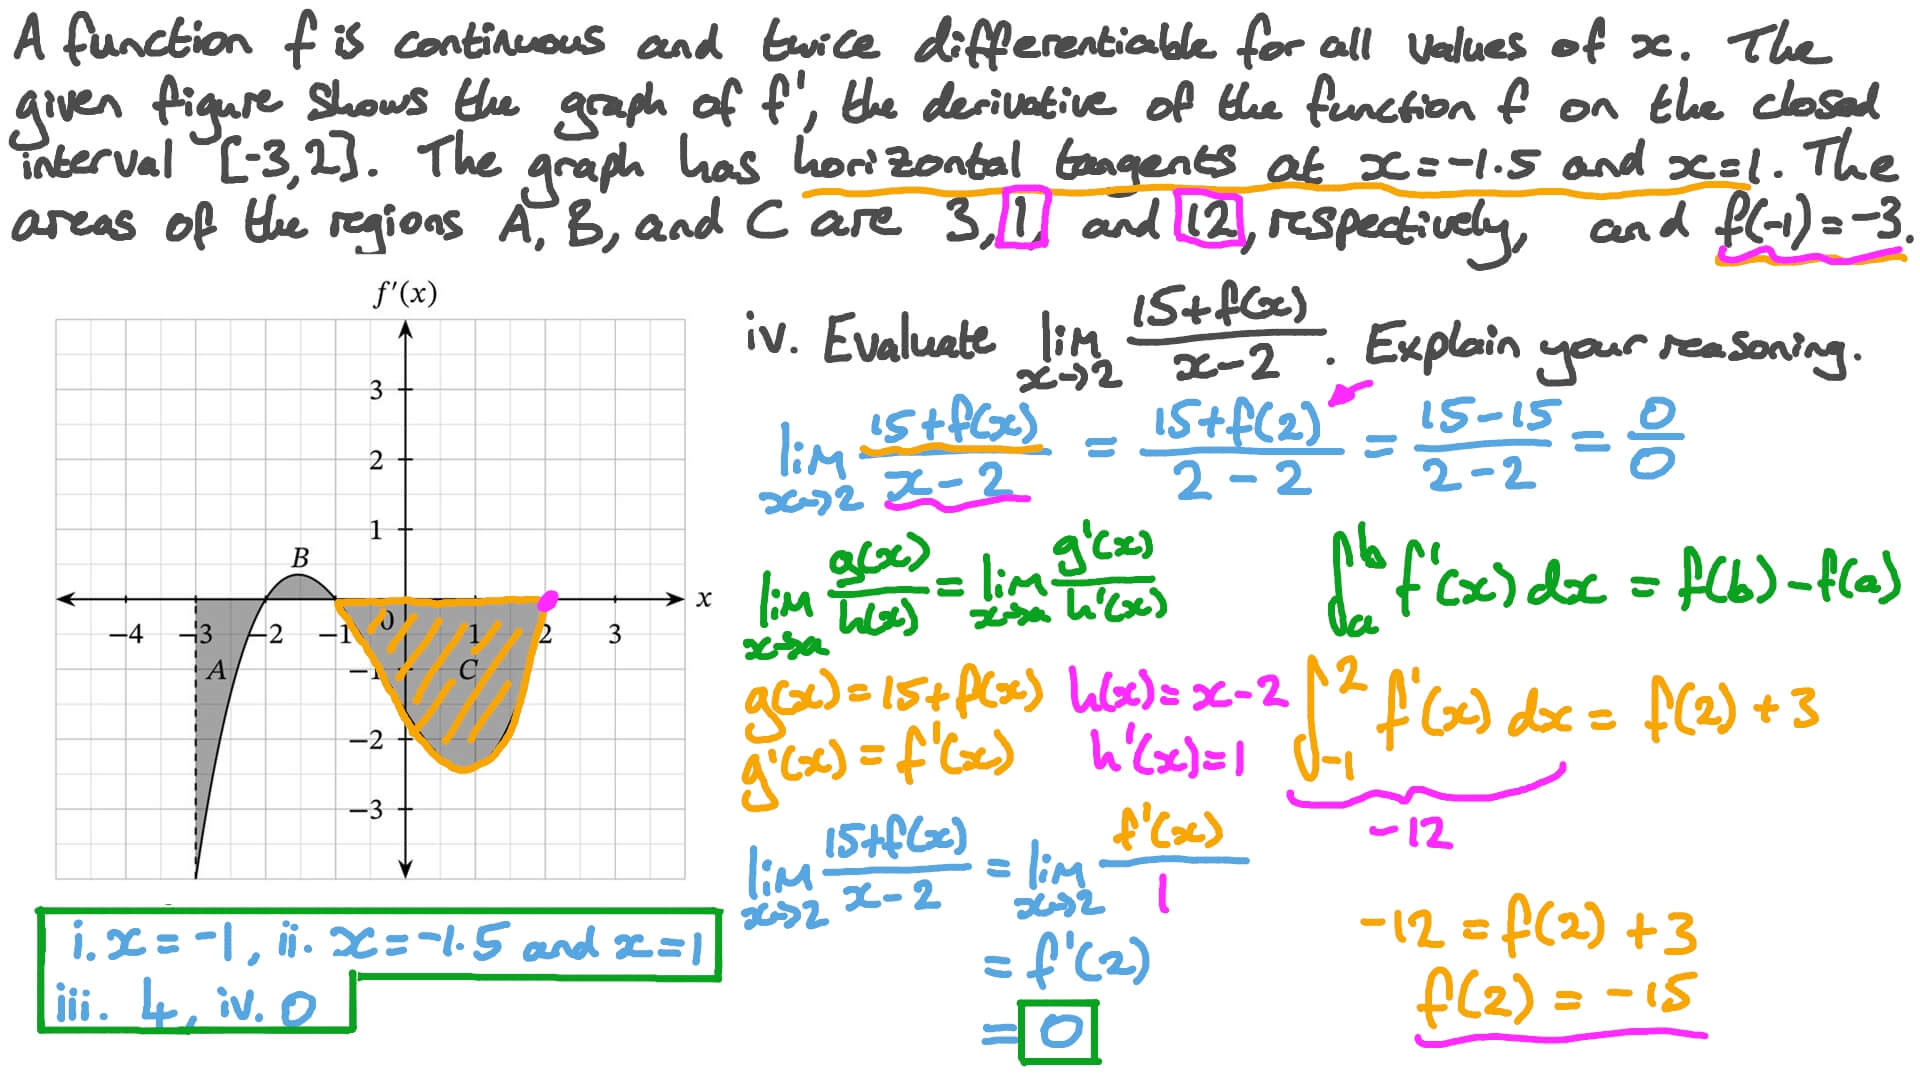 A function f is continuous and twice differentiable for all values of x. The
given figure shows the graph of f', the derivative of the function f on the closed
interval [-3,2]. The graph has horizontal tangents at x=-1.5 and x=1. The
areas of the regions A, B, and C are 3, 1, and 12, respectively, and f(-1)=-3.
f'(x)
3
2
1
B
x
-4 -3 -2 -1 0 1 2 3
A
-1
C
-2
-3
iv. Evaluate lim x→2 (15+f(x))/(x-2). Explain your reasoning.
lim x→2 (15+f(x))/(x-2) = (15+f(2))/(2-2) = (15-15)/(2-2) = 0/0
lim x→a g(x)/h(x) = lim x→a g'(x)/h'(x)
∫_a^b f'(x) dx = f(b)-f(a)
g(x)=15+f(x) h(x)=x-2
g'(x)=f'(x) h'(x)=1
∫_-1^2 f'(x) dx = f(2)+3
-12
lim x→2 (15+f(x))/(x-2) = lim x→2 f'(x)/1
= f'(2)
= 0
-12 = f(2)+3
f(2) = -15
i. x=-1, ii. x=-1.5 and x=1
iii. 4, iv. 0